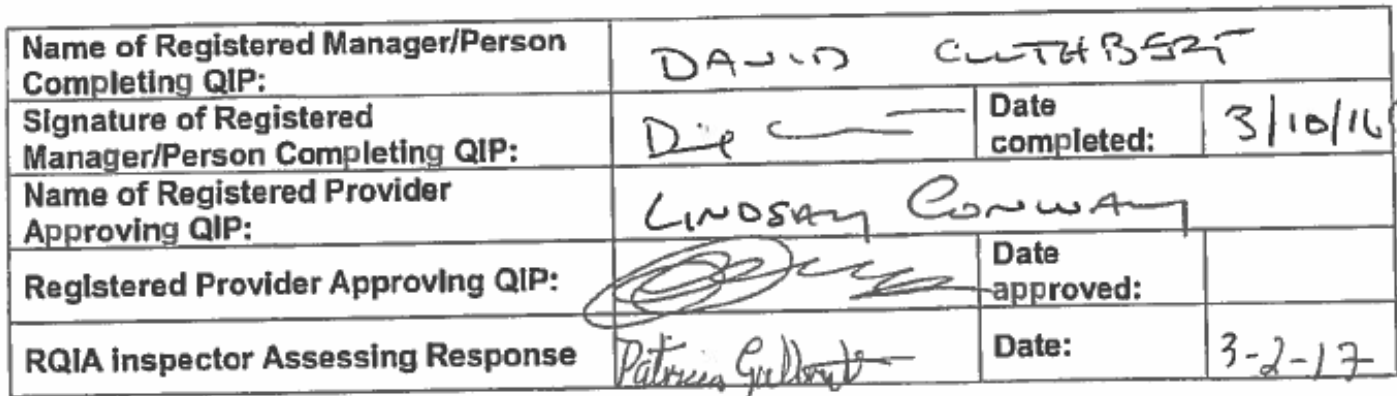 Name of Registered Manager/Person Completing QIP: DAVID CUTHBERT
Signature of Registered Manager/Person Completing QIP: Date completed: 3/10/16
Name of Registered Provider Approving QIP: LINDSAY CONWAY
Registered Provider Approving QIP: Date approved:
RQIA Inspector Assessing Response Patricia Date: 3-2-17